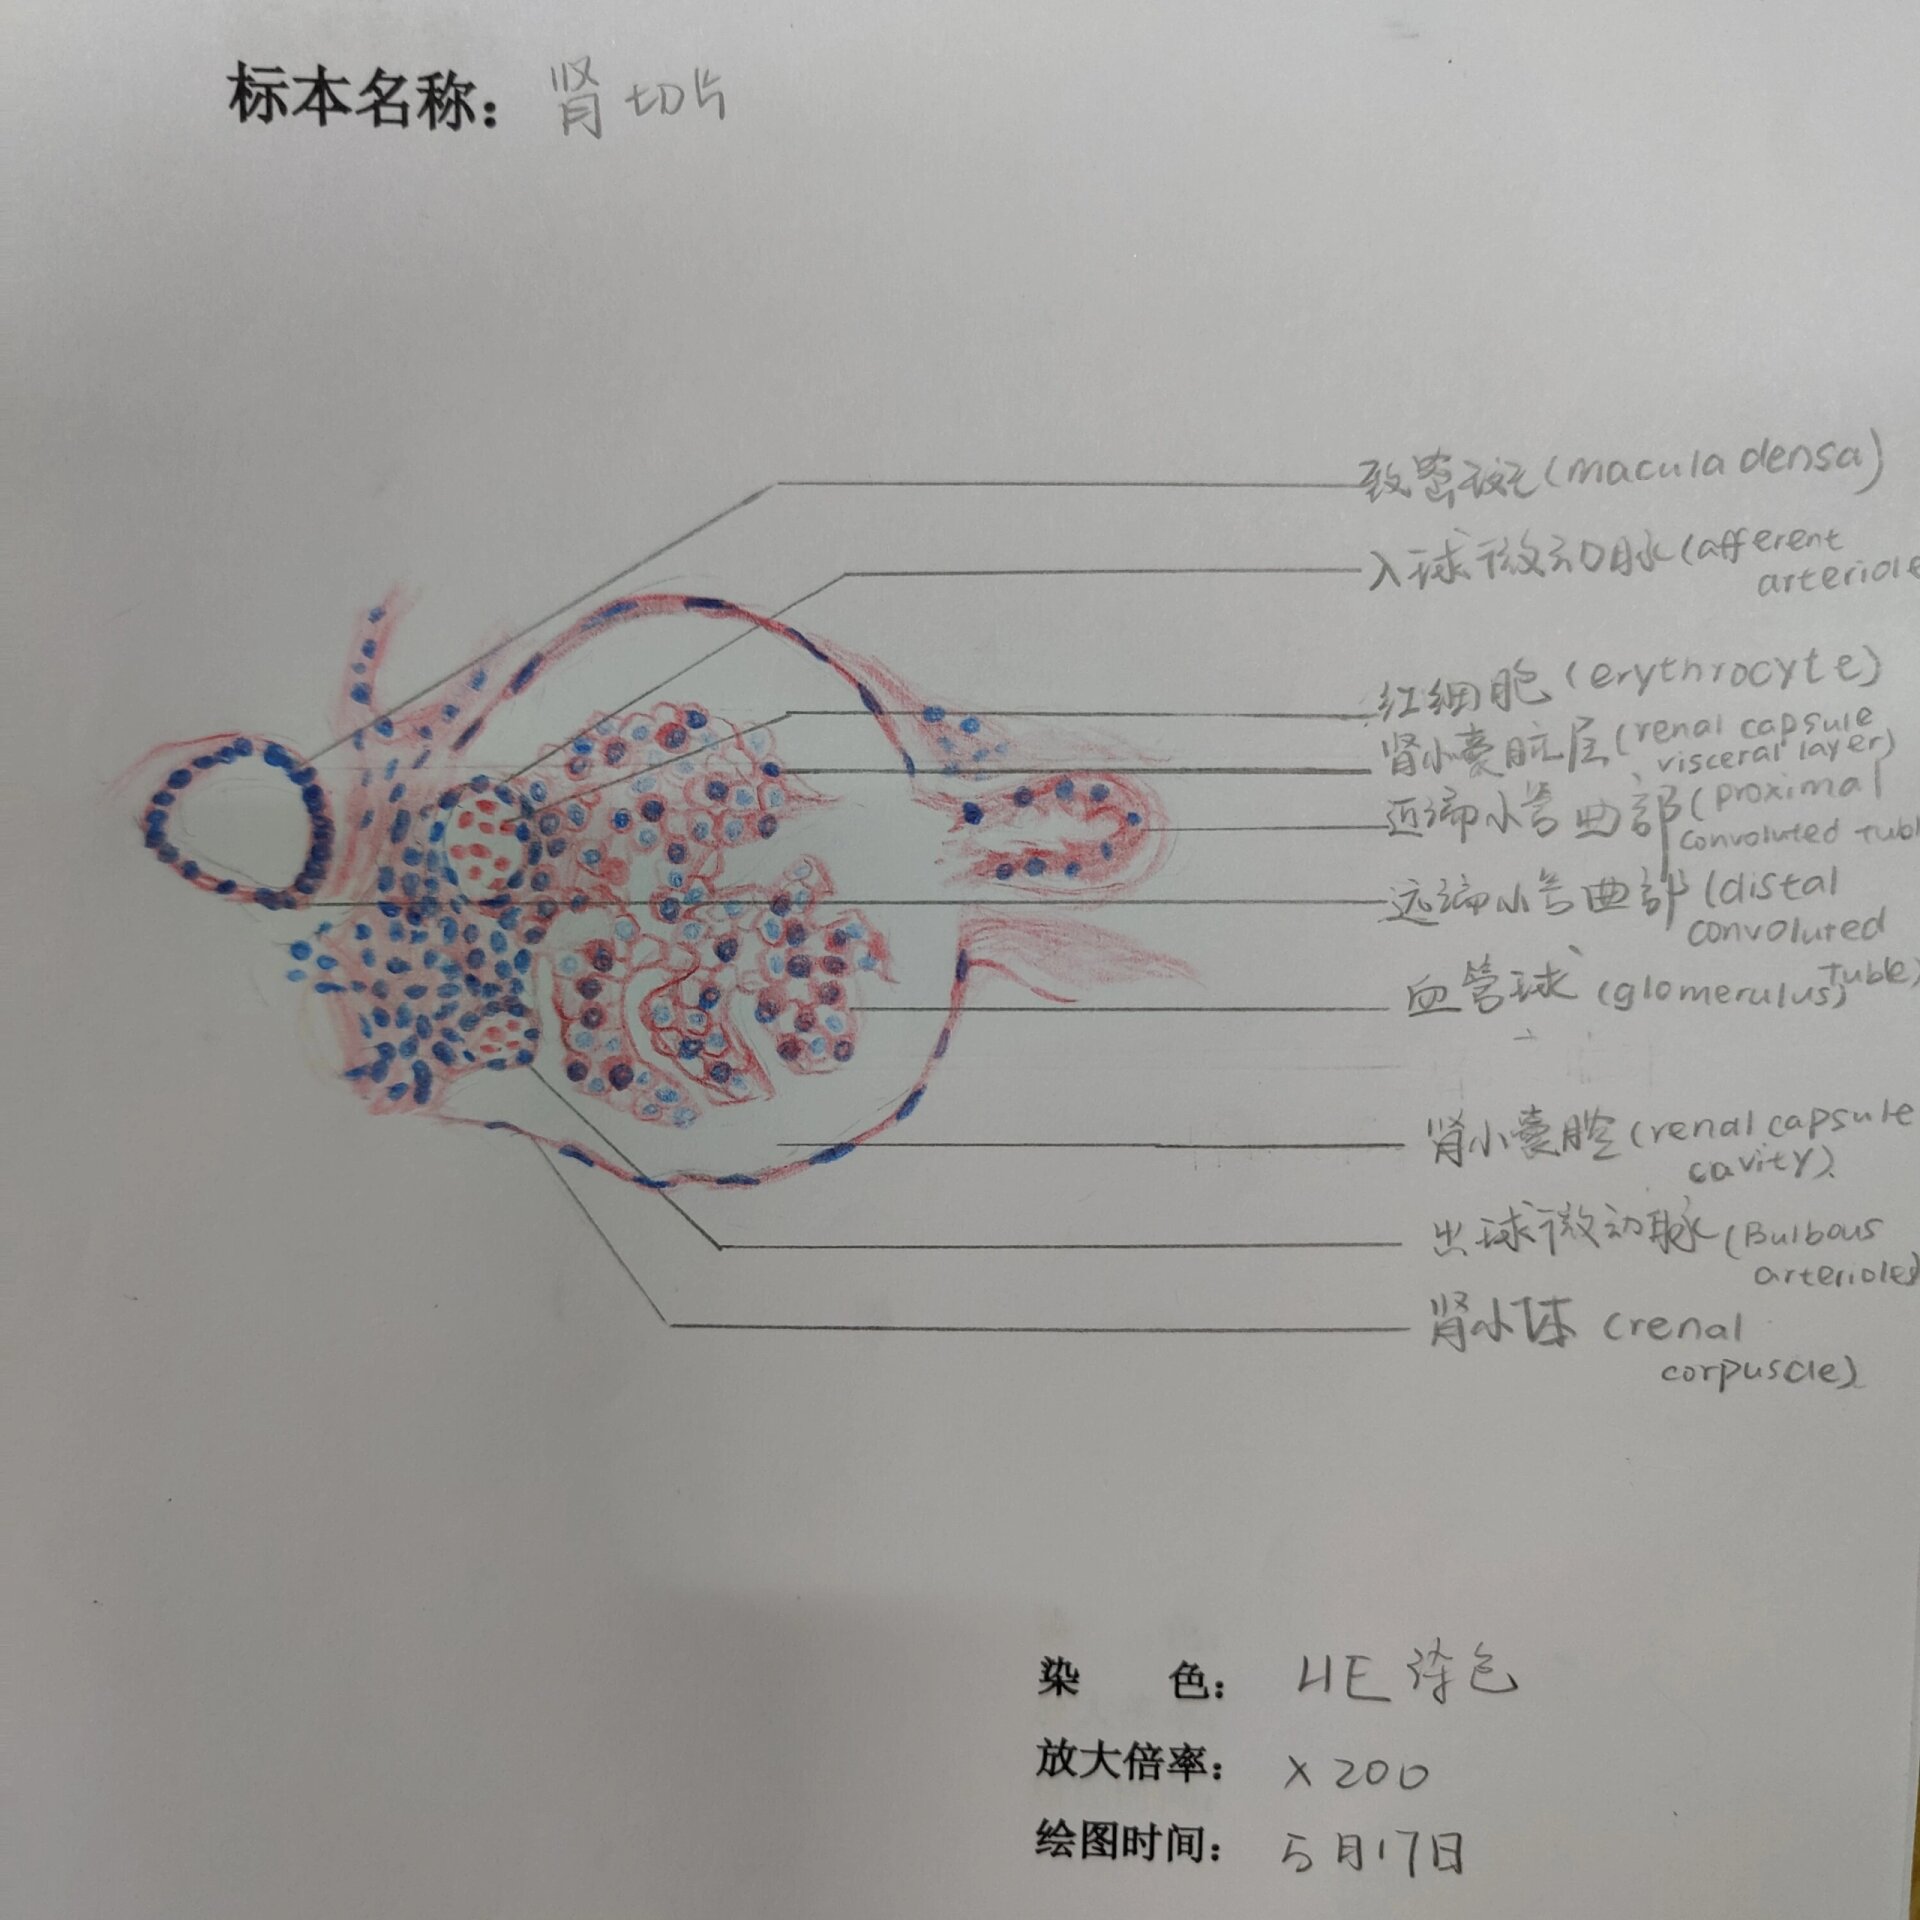 标本名称：肾切片
致密斑(macula densa)
入球微动脉(afferent
arteriole
红细胞(erythrocyte)
肾小囊脏层(renal capsule
visceral layer)
近端小管曲部(proximal
convoluted tubl
远端小管曲部(distal
convoluted
tuble)
血管球(glomerulus)
肾小囊腔(renal capsule
cavity)
出球微动脉(Bulbous
arterioles)
肾小体(renal
corpuscle)
染 色：HE染色
放大倍率：×200
绘图时间：5月17日